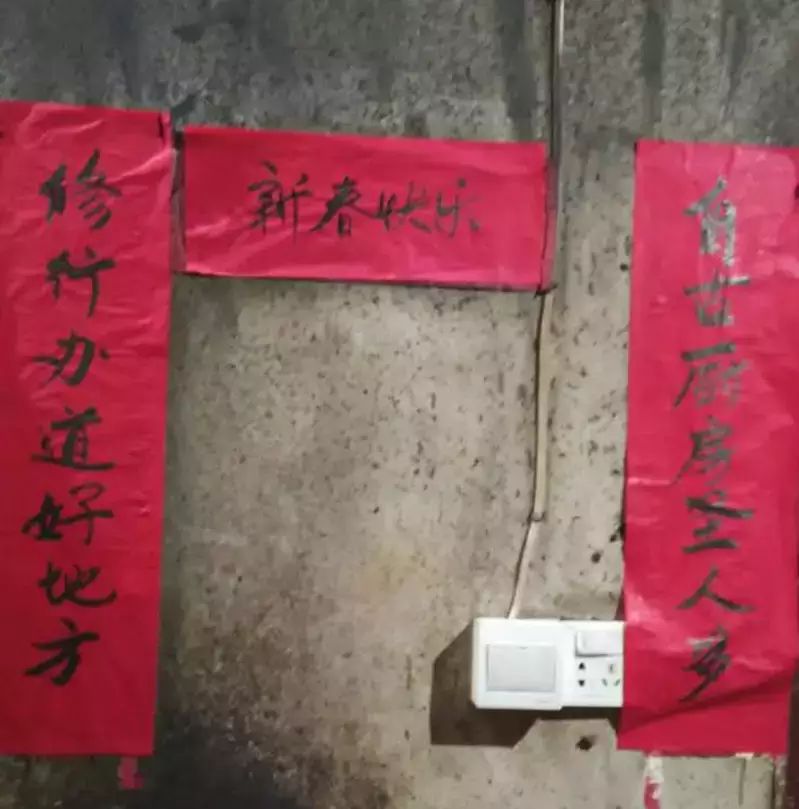 新春快乐
自古厨房圣人多
修行办道好地方